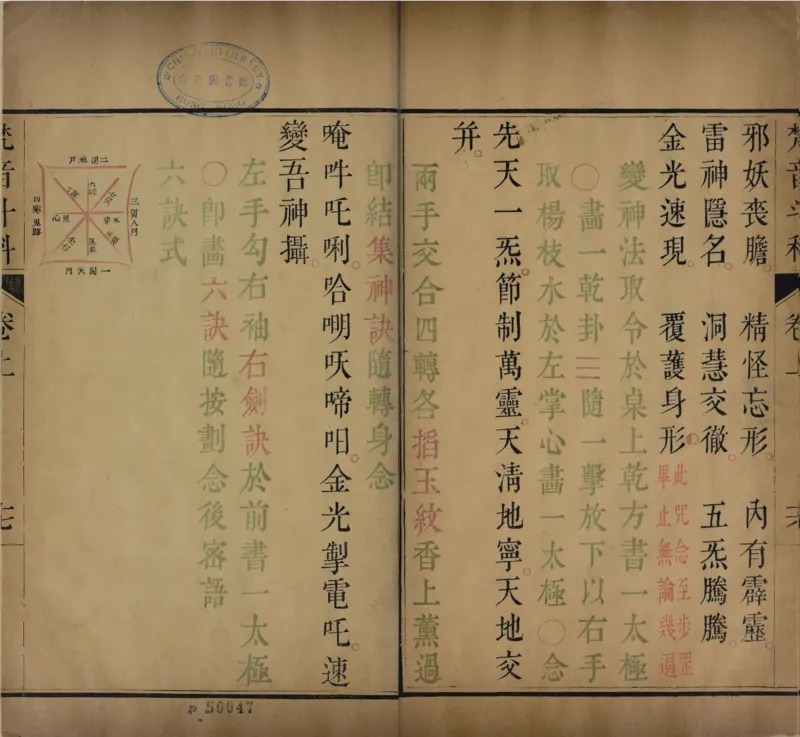 邪妖喪膽。精怪忘形。內有霹靂。
雷神隱名。洞慧交徹。五炁騰騰。
金光速現。覆護身形。此咒念至步罡畢止無論幾遍
變神法取令於桌上乾方書一太極
〇畫一乾卦☰隨一擊放下以右手
取楊枝水於左掌心畫一太極〇念
先天一炁。節制萬靈。天清地寧。天地交
并。
兩手交合四轉各搯玉紋香上薰過
即結集神訣隨轉身念
唵吽吒唎。哈𠵇㕭啼呬。金光掣電吒。速
變吾神攝
左手勾右袖右劍訣於前書一太極
〇即畫六訣隨按劃念後密語
六訣式
二閉地戶
三留人門
四塞鬼路
一開天門
梵音斗科
卷上
CHUNG CHI LIBRARY
HONG KONG
P 50047